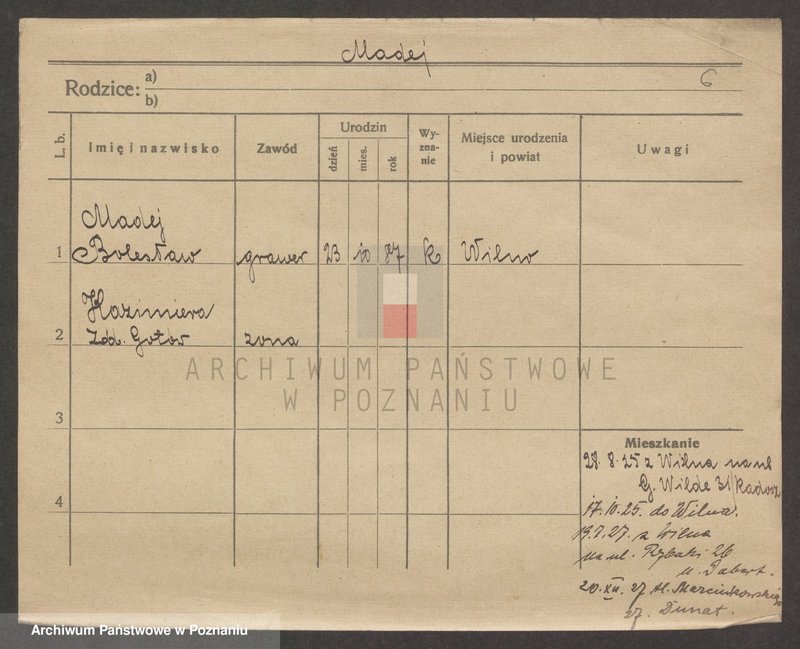 Madej
6
Rodzice: a)
b)
L. b.
Imię i nazwisko
Zawód
Urodzin
dzień
mies.
rok
Wy-
zna-
nie
Miejsce urodzenia
i powiat
Uwagi
Madej
1 Bolesław grawer 23 10 87 k Wilno
Kazimiera
2 zd. Gotów żona
3
4
Mieszkanie
28. 8. 25 z Wilna na ul
G. Wilde 31/Kadosz
17. 10. 25. do Wilna.
19.2.27. z Wilna
na ul. Rybaki 26
u. Dabert.
20. XII. 27 Al. Marcinkowskiego
27. Dunat.
ARCHIWUM PAŃSTWOWE
W POZNANIU
Archiwum Państwowe w Poznaniu